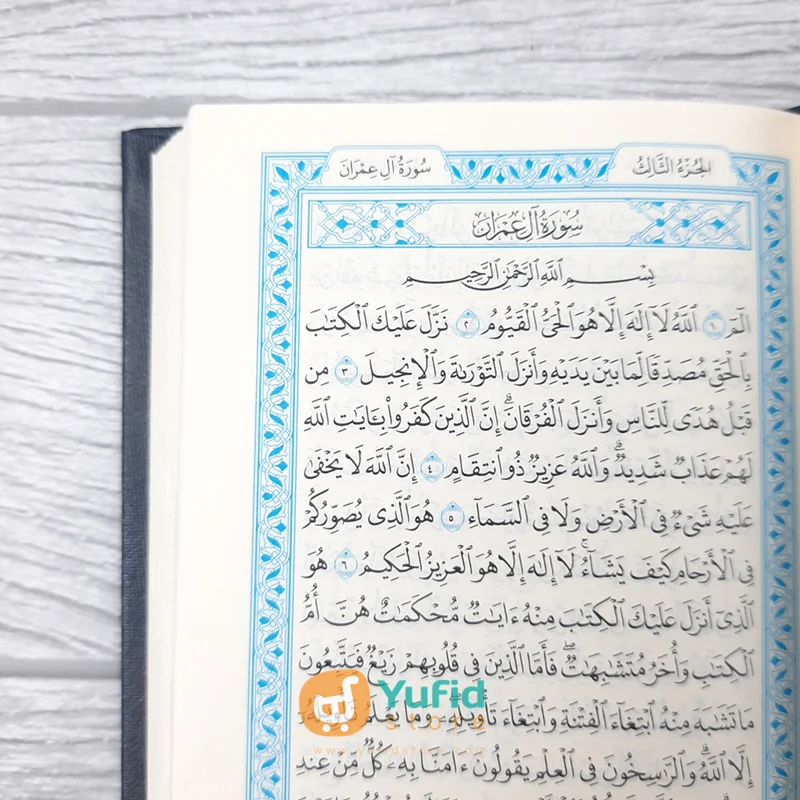 سُورَةُ آلِ عِمْرَانَ
الجُزْءُ الثَّالِثُ
سُورَةُ آلِ عِمْرَانَ
بِسْمِ ٱللَّهِ ٱلرَّحْمَٰنِ ٱلرَّحِيمِ
الٓمٓ ١ ٱللَّهُ لَآ إِلَٰهَ إِلَّا هُوَ ٱلْحَىُّ ٱلْقَيُّومُ ٢ نَزَّلَ عَلَيْكَ ٱلْكِتَٰبَ
بِٱلْحَقِّ مُصَدِّقًا لِّمَا بَيْنَ يَدَيْهِ وَأَنزَلَ ٱلتَّوْرَىٰةَ وَٱلْإِنجِيلَ ٣ مِن
قَبْلُ هُدًى لِّلنَّاسِ وَأَنزَلَ ٱلْفُرْقَانَ ۗ إِنَّ ٱلَّذِينَ كَفَرُوا۟ بِـَٔايَٰتِ ٱللَّهِ
لَهُمْ عَذَابٌ شَدِيدٌ ۗ وَٱللَّهُ عَزِيزٌ ذُو ٱنتِقَامٍ ٤ إِنَّ ٱللَّهَ لَا يَخْفَىٰ
عَلَيْهِ شَىْءٌ فِى ٱلْأَرْضِ وَلَا فِى ٱلسَّمَآءِ ٥ هُوَ ٱلَّذِى يُصَوِّرُكُمْ
فِى ٱلْأَرْحَامِ كَيْفَ يَشَآءُ ۚ لَآ إِلَٰهَ إِلَّا هُوَ ٱلْعَزِيزُ ٱلْحَكِيمُ ٦ هُوَ
ٱلَّذِىٓ أَنزَلَ عَلَيْكَ ٱلْكِتَٰبَ مِنْهُ ءَايَٰتٌ مُّحْكَمَٰتٌ هُنَّ أُمُّ
ٱلْكِتَٰبِ وَأُخَرُ مُتَشَٰبِهَٰتٌ ۖ فَأَمَّا ٱلَّذِينَ فِى قُلُوبِهِمْ زَيْغٌ فَيَتَّبِعُونَ
مَا تَشَٰبَهَ مِنْهُ ٱبْتِغَآءَ ٱلْفِتْنَةِ وَٱبْتِغَآءَ تَأْوِيلِهِۦ ۗ وَمَا يَعْلَمُ تَأْوِيلَهُۥٓ
إِلَّا ٱللَّهُ ۗ وَٱلرَّٰسِخُونَ فِى ٱلْعِلْمِ يَقُولُونَ ءَامَنَّا بِهِۦ كُلٌّ مِّنْ عِندِ
Yufid
store
www.yufidstore.com